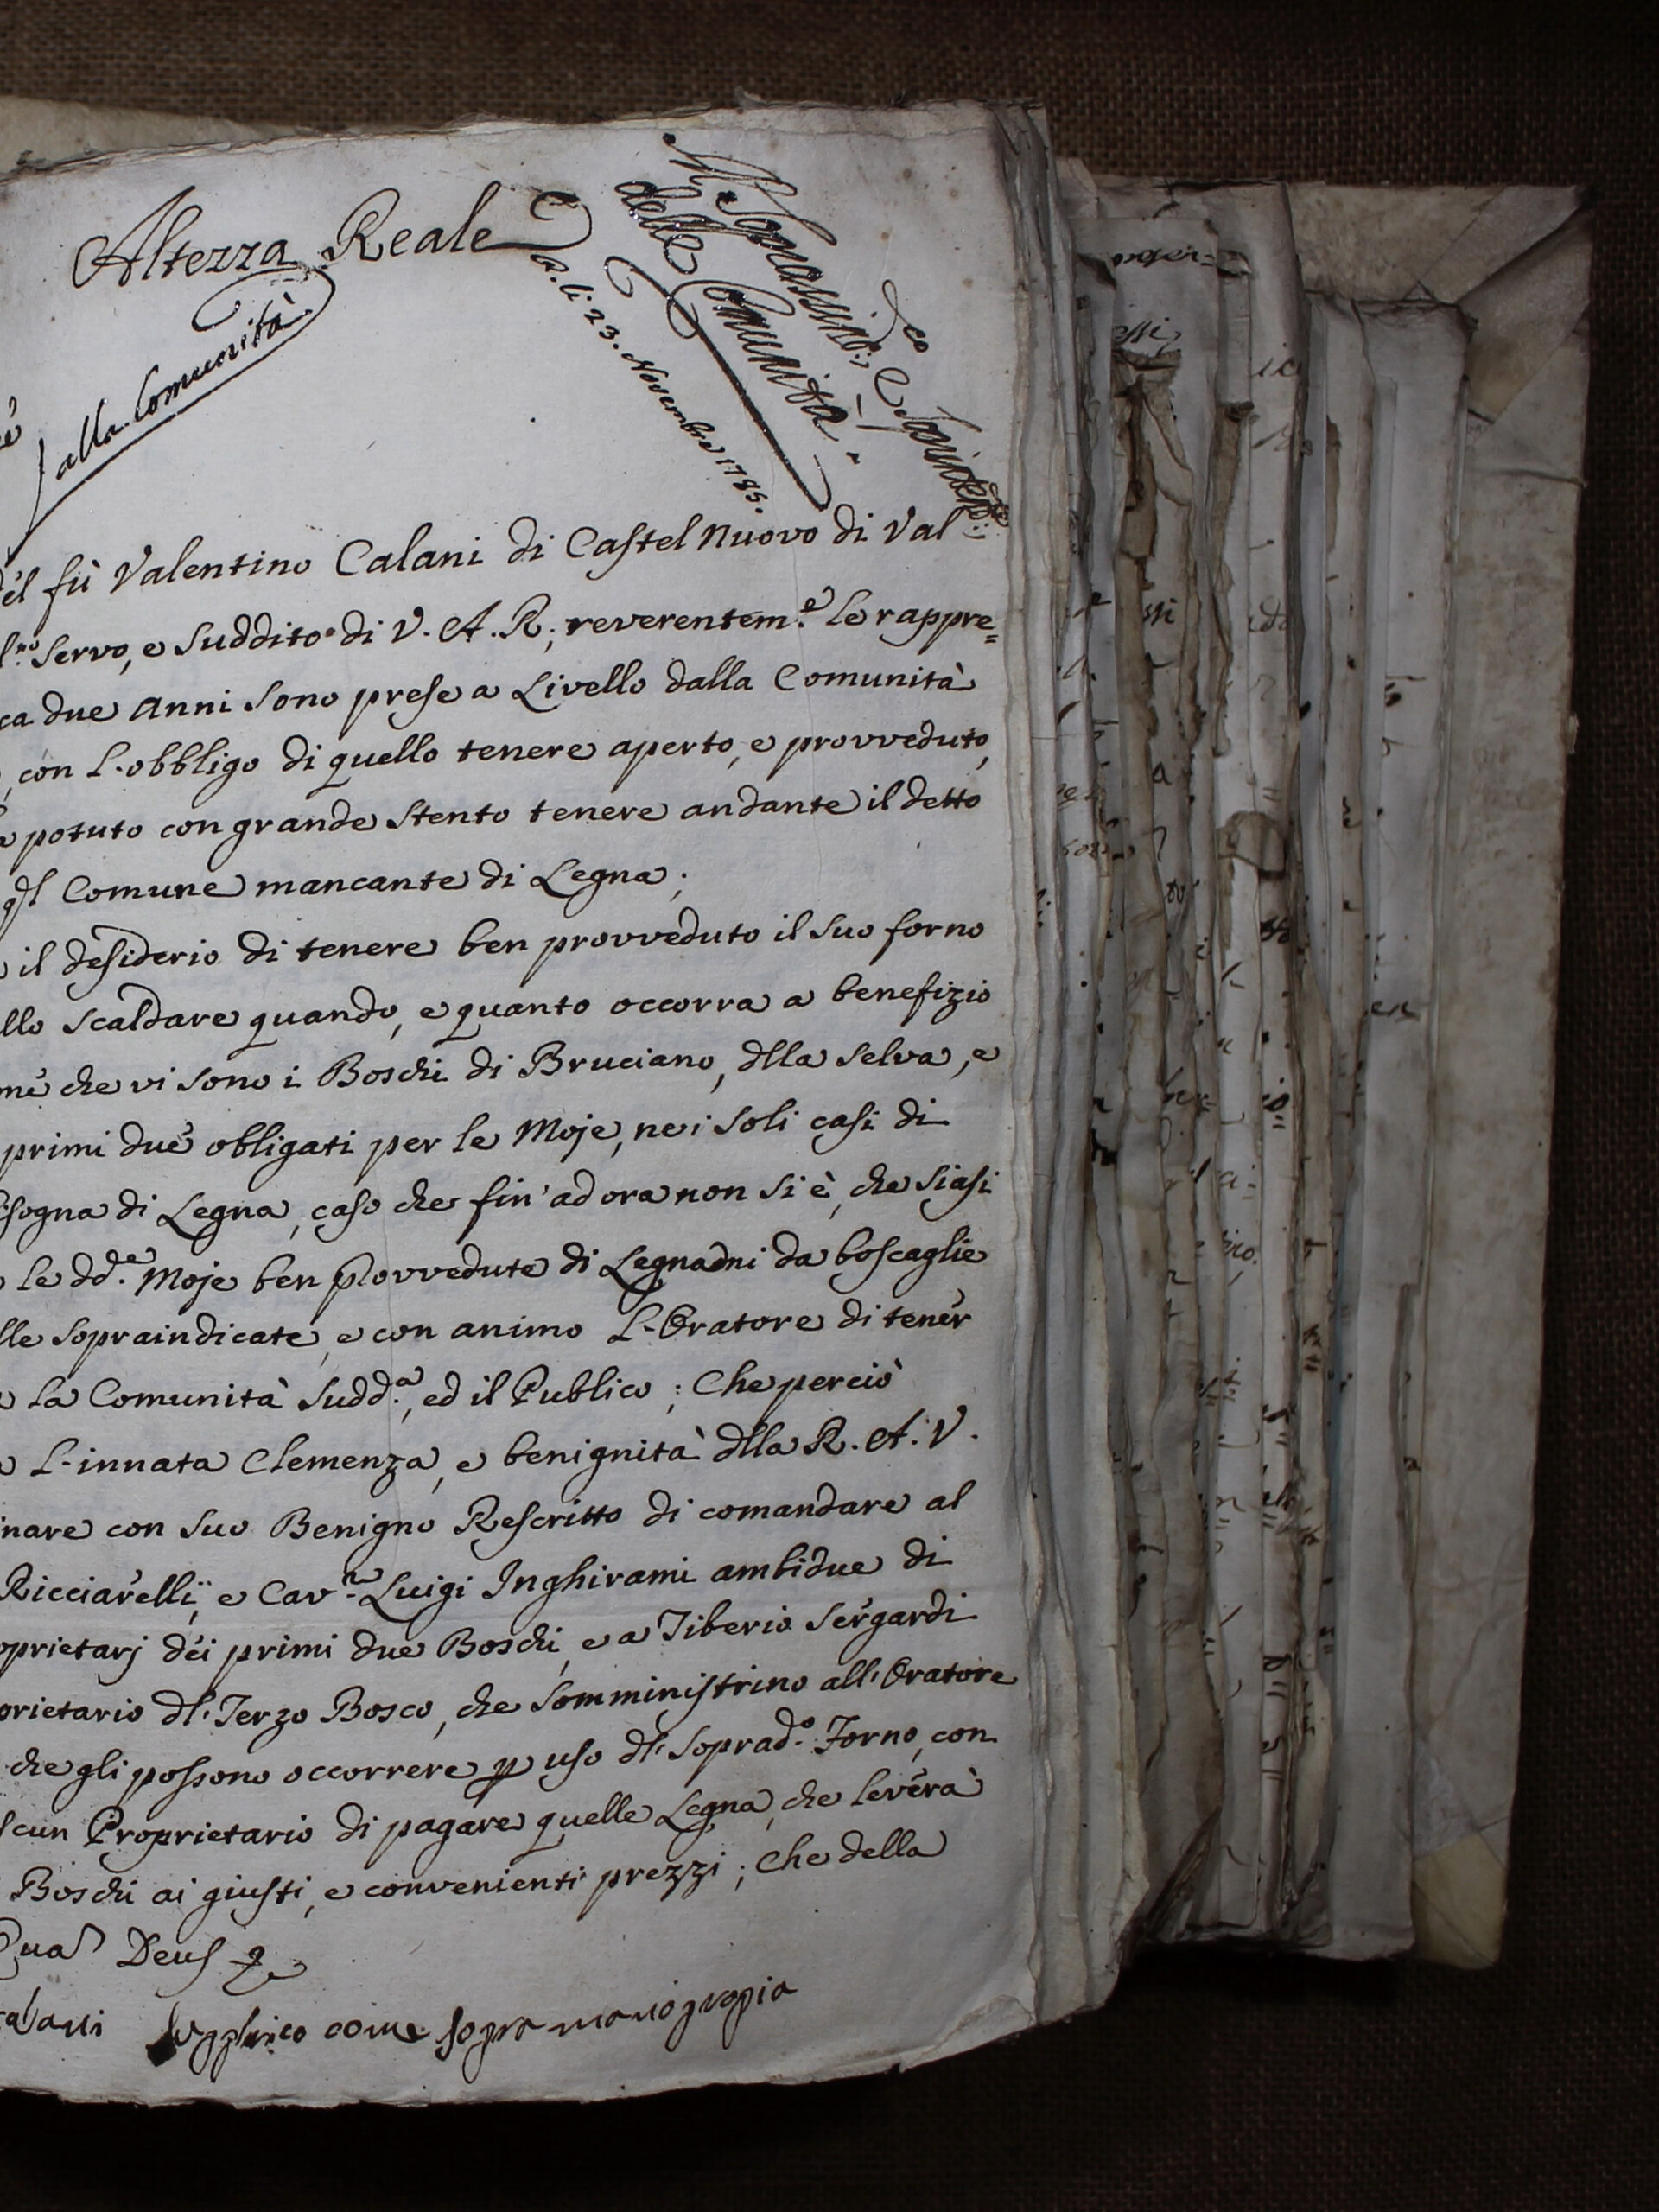 Altezza Reale
alla Comunità
a. li 23. Novembre 1785.
delle Comunità
del fù Valentino Calani di Castel Nuovo di Val
servo, e Suddito di V. A. R; reverentem.e le rappre=
ca due Anni sono prese a Livello dalla Comunità
con L'obbligo di quello tenere aperto, e provveduto,
potuto con grande stento tenere andante il detto
Comune mancante di Legna;
il desiderio di tenere ben provveduto il suo forno
llo scaldare quando, e quanto occorra a benefizio
me che vi sono i Boschi di Bruciano, dlla Selva, e
primi due obligati per le Moje, nei soli casi di
isogna di Legna, caso che fin' ad ora non si è, che siasi
le dd.e Moje ben provvedute di Legnami da boscaglie
lle sopraindicate, e con animo L'Oratore di tener
la Comunità sudd.a, ed il Publico; Che perciò
L'innata Clemenza, e benignità dlla R. A. V.
nare con suo Benigno Rescritto di comandare al
Ricciarelli, e Cav.re Luigi Inghirami ambidue di
oprietarj dei primi due Boschi, e a Tiberio Sergardi
prietario dl' Terzo Bosco, che somministrino all' Oratore
che gli possono occorrere p uso dl' soprad.o Forno, con
scun Proprietario di pagare quelle Legna, che leverà
Boschi ai giusti, e convenienti prezzi; Che della
Deus
supplico come sopra manopropia